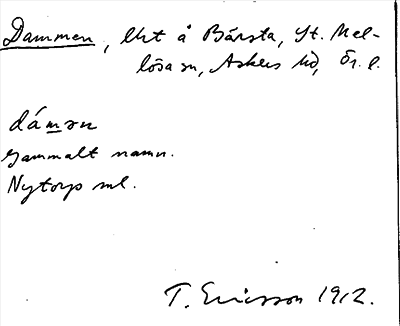 Dammen, lht å Bärsta, St. Mel-
lösa sn, Askers hd, Ör. l.
dámən
Gammalt namn.
Nytorp ml.
T. Ericsson 1912.